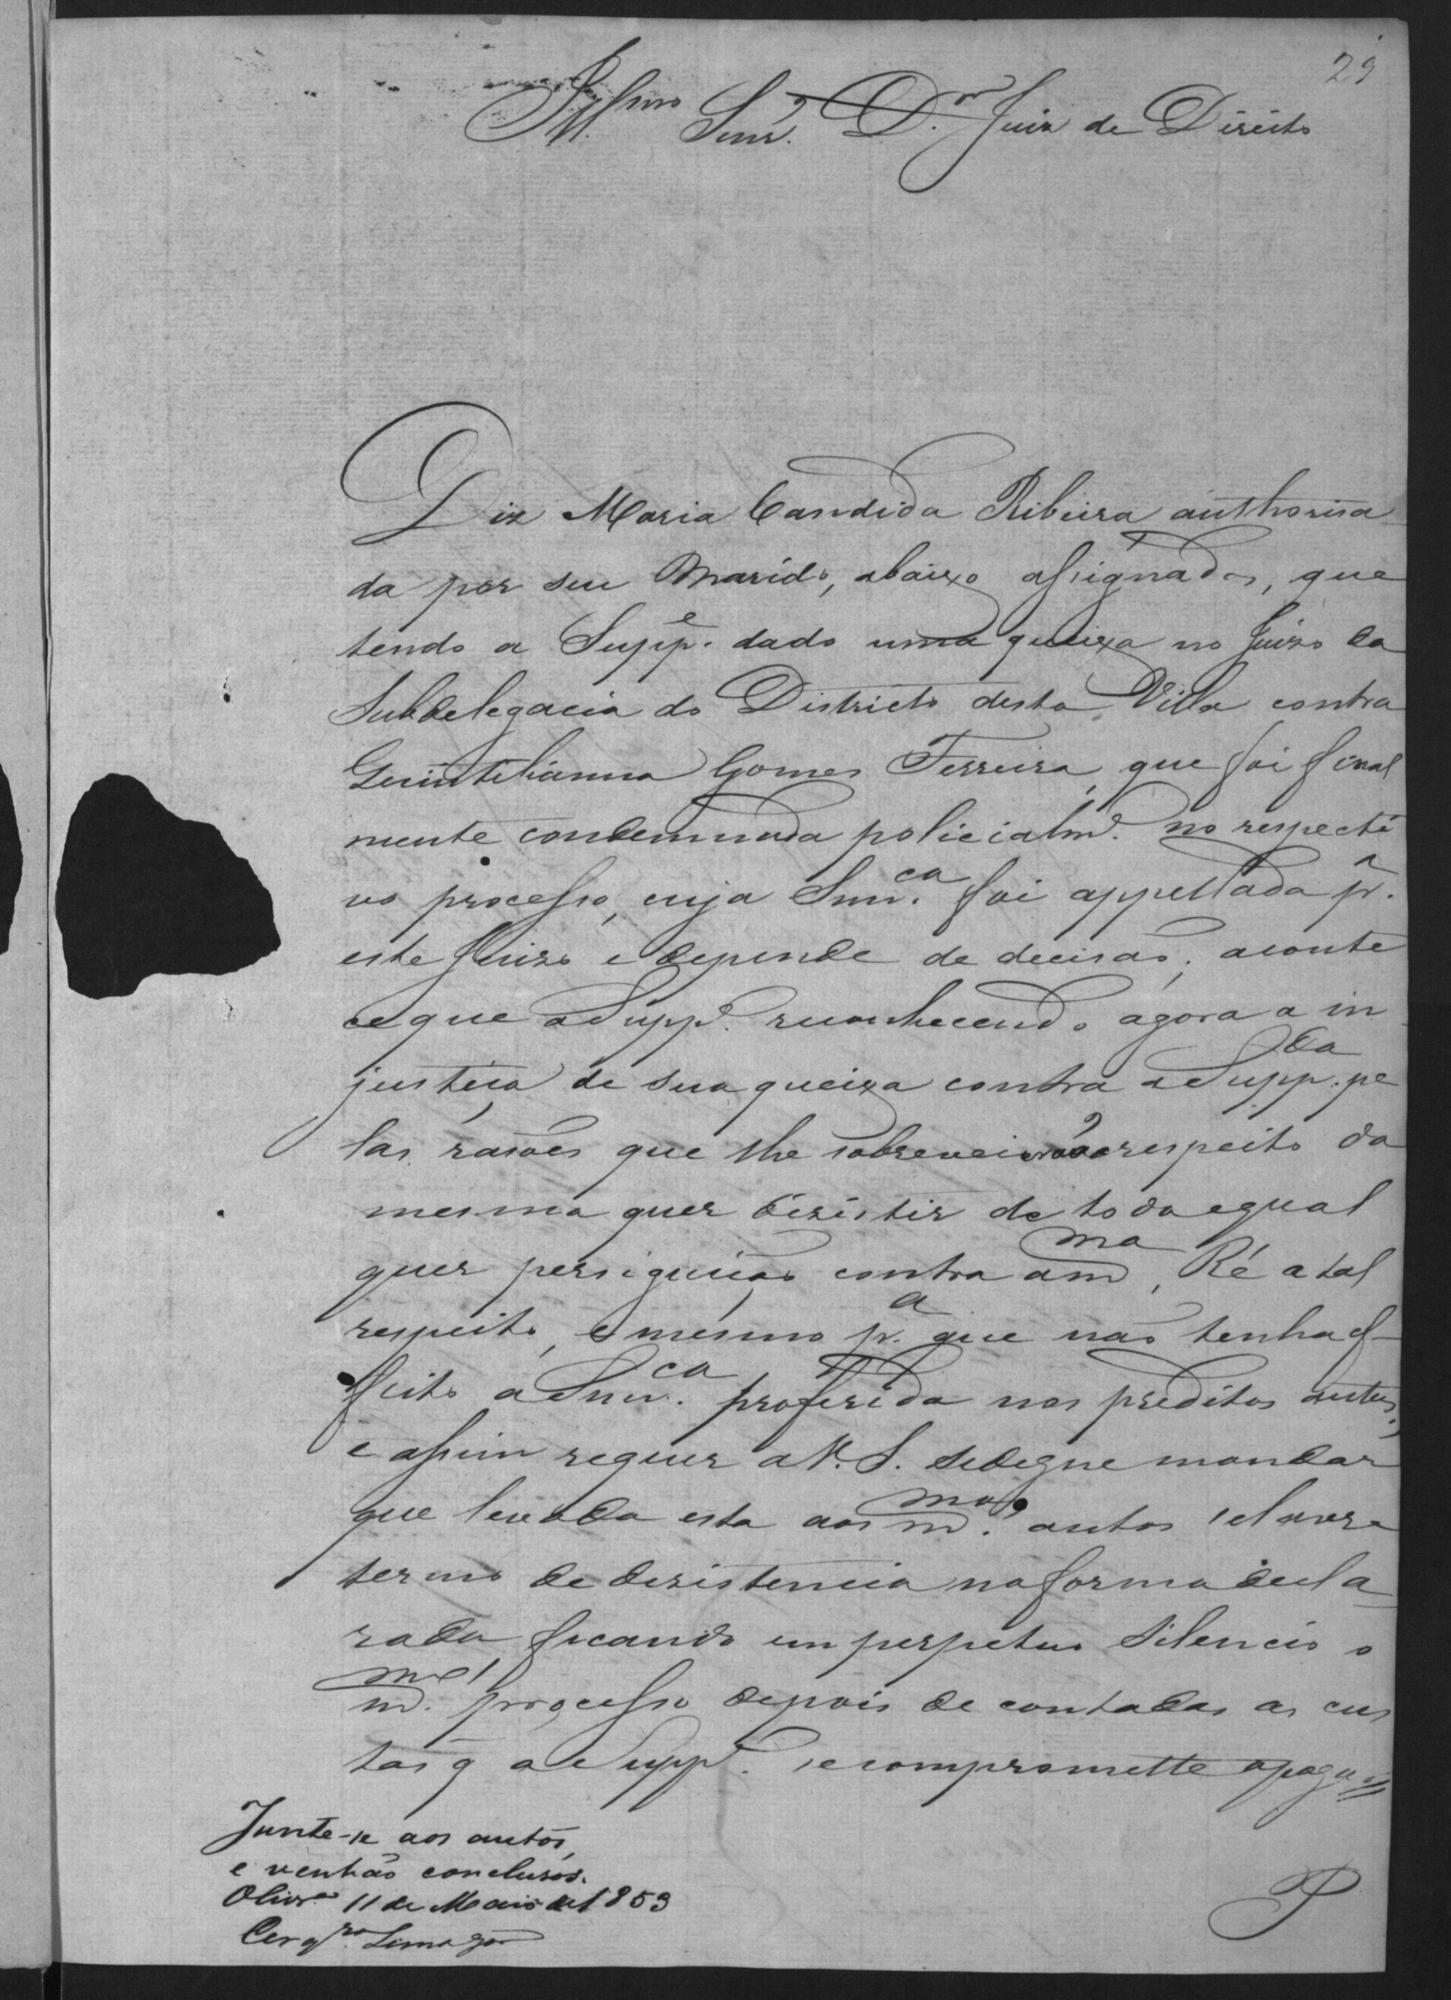 29
Illmo Senr. Dr. Juiz de Direito
Diz Maria Candida Ribeira authorisa-
da por seu Marido, abaixo assignados, que
tendo a Suppe. dado uma queixa no Juizo da
Subdelegacia do Districto desta Villa contra
Quintilianna Gomes Ferreira, que foi final
mente condemnada policialme. no respecti
vo processo, cuja Snnca. foi appellada pr.
este Juizo e depende de decisão; aconte
ce que a Suppe. reconhecendo agora a in-
justiça de sua queixa contra a Suppda. pe
las rasões que lhe sobreveirão a respeito da
mesma quer dizistir de toda e qual
quer persiguição contra a mma. Ré a tal
respeito, e mesmo pa. que não tenha ef-
feito a Snnca. proferida nos preditos autos,
e assim requer a V. S. se digne mandar
que levada esta aos mmos. autos se lavre
termo de dezistencia na forma decla-
rada ficando em perpetuo silencio o
mmo. processo depois de contadas as cus
tas q̃ a Suppe. se compromette a pagar
Junte-se aos autos,
e venhão conclusos.
Olivra. 11 de Maio de 1853
Cerqra. Lima
P